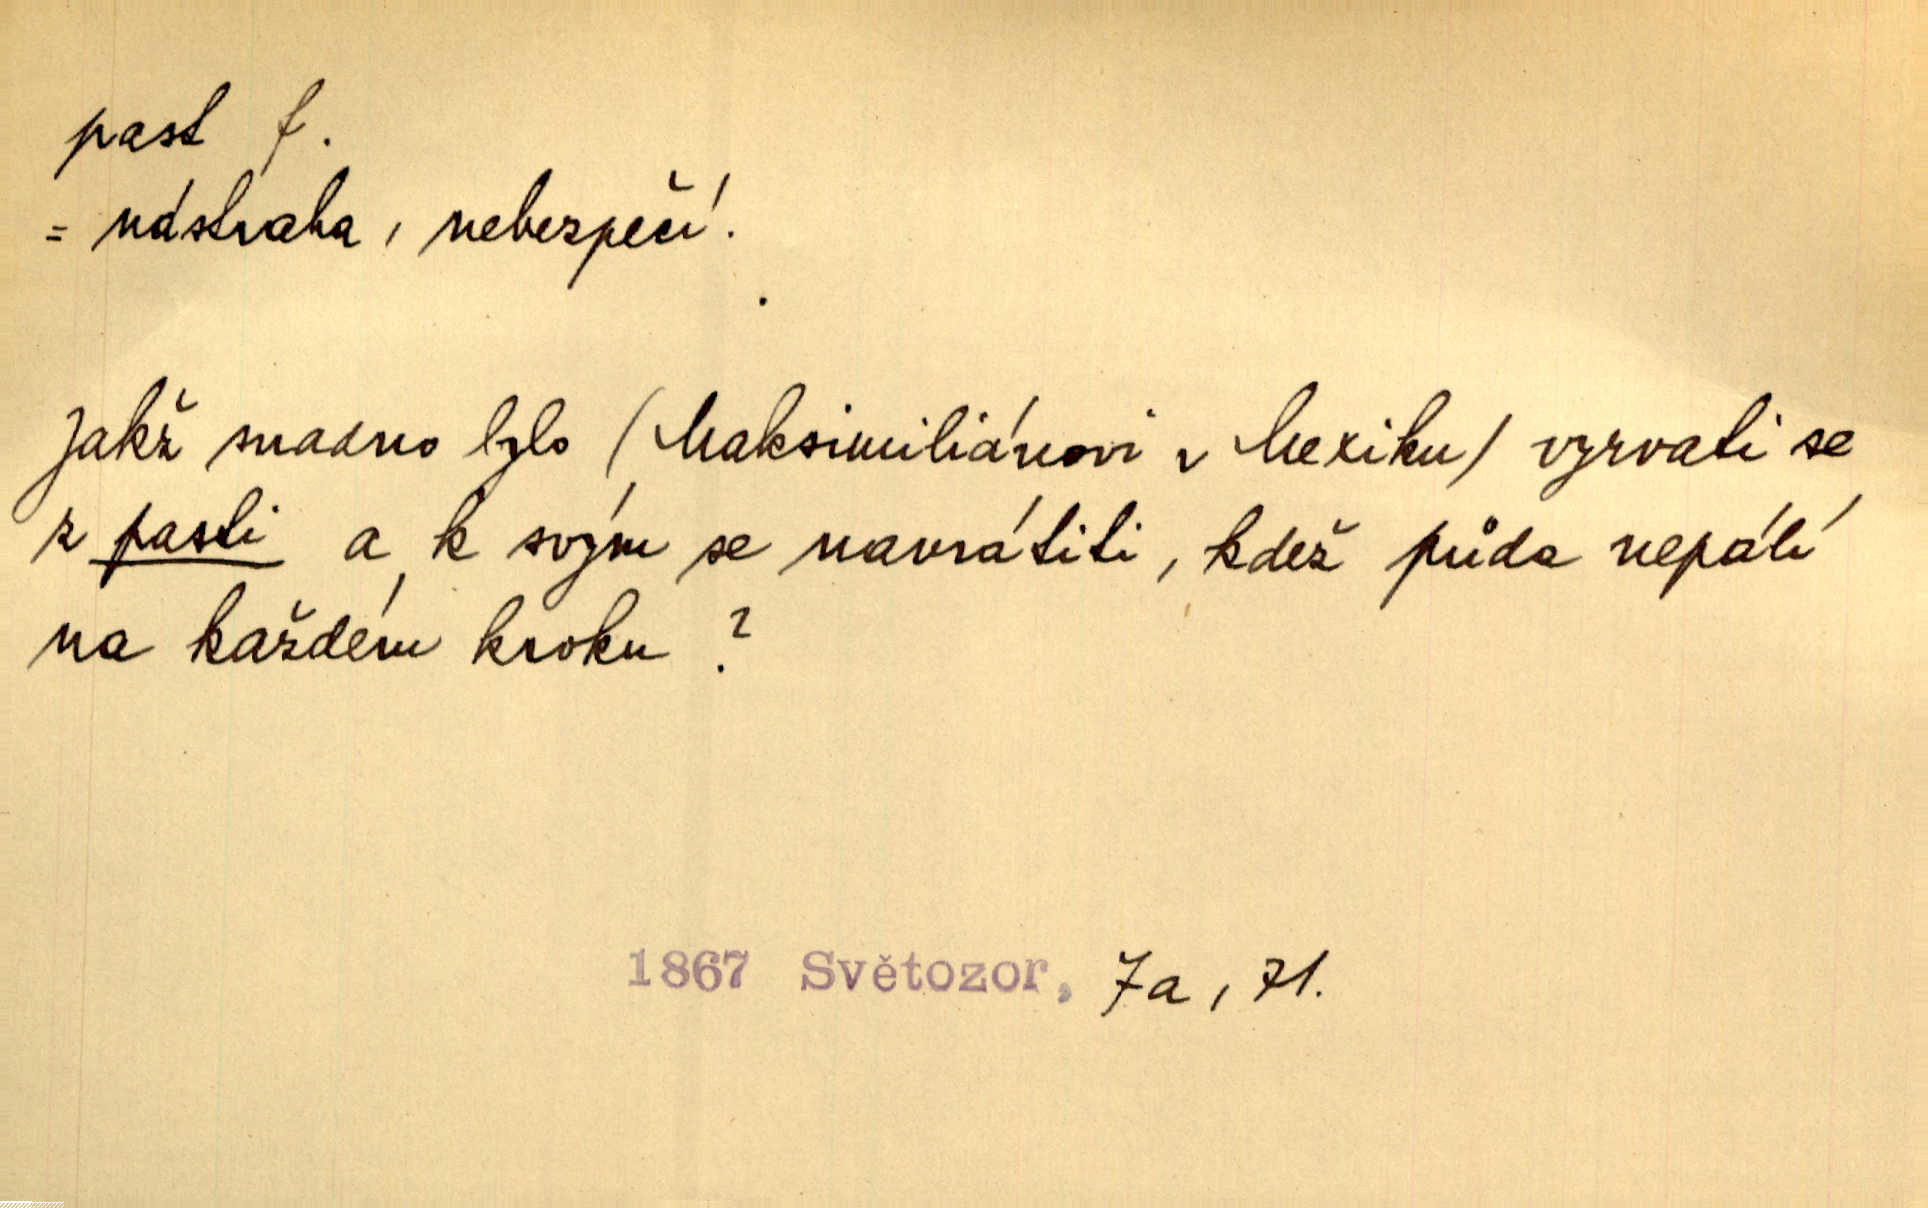 past f.
= nástraha, nebezpečí.
Jakž snadno bylo (Maksimiliánovi v Mexiku) vyrvati se
z pasti a k svým se navrátiti, kdež půda nepálí
na každém kroku?
1867 Světozor, 7a, 71.